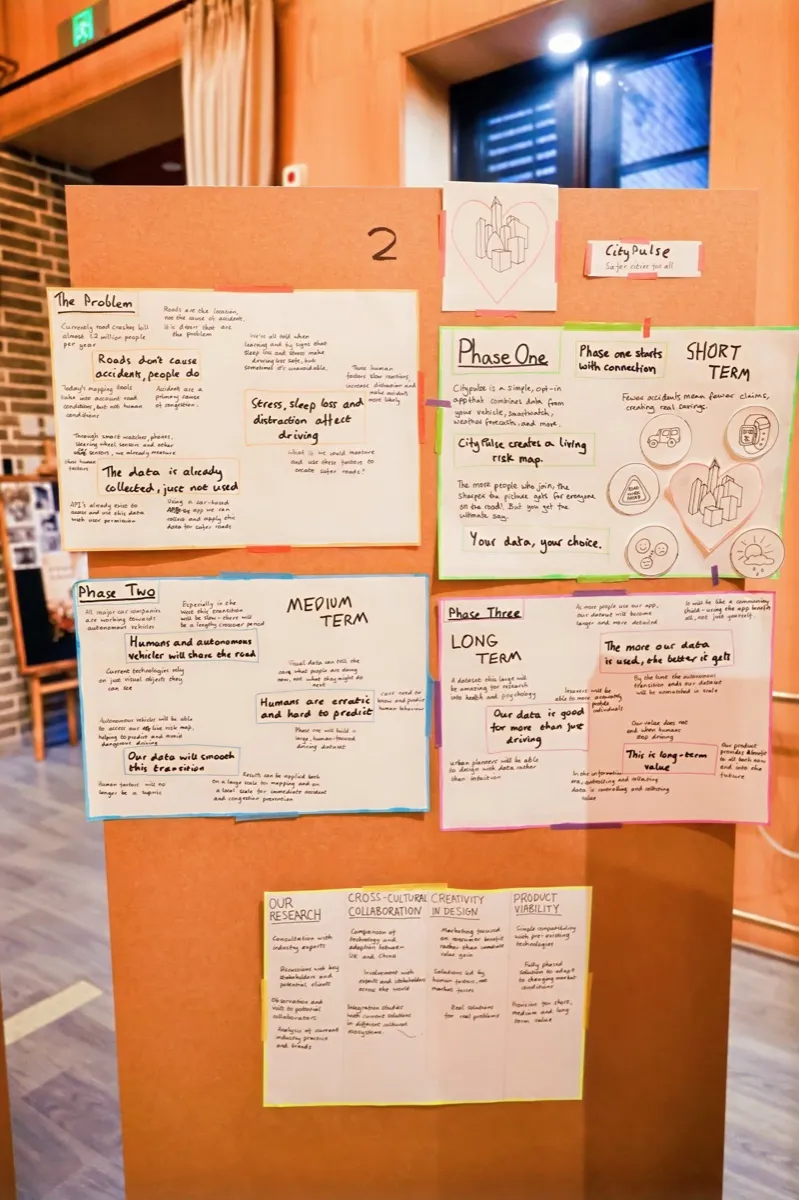 2
CityPulse
Safer cities for all
The Problem
Currently road crashes kill
almost 1.2 million people
per year
Roads are the location,
not the cause of accident.
it is drivers that are
the problem
Roads don't cause
accidents, people do
Today's mapping tools
take into account road
conditions, but not human
conditions
Accidents are a
primary cause
of congestion.
We're all told when
learning and by signs that
sleep loss and stress make
driving less safe, but
sometimes it's unavoidable.
These human
factors slow reactions,
increase distraction and
make accidents
more likely
Stress, sleep loss and
distraction affect
driving
What if we could measure
and use these factors to
create safer roads?
Through smart watches, phones,
steering wheel sensors and other
sensors, we already measure
human
factors
The data is already
collected, just not used
API's already exist to
access and use this data
with user permission
Using a car-based
app we can
collect and apply this
data for safer roads
Phase One
Phase one starts
with connection
SHORT
TERM
Citypulse is a simple, opt-in
app that combines data from
your vehicle, smartwatch,
weather forecasts, and more.
Fewer accidents mean fewer claims,
creating real savings.
CityPulse creates a living
risk map.
The more people who join, the
sharper the picture gets for everyone
on the road! But you get the
ultimate say.
ROAD
WORK
AHEAD
Your data, your choice.
Phase Two
All major car companies
are working towards
autonomous vehicles
Especially in the
West this transition
will be slow - there will
be a lengthy crossover period
MEDIUM
TERM
Humans and autonomous
vehicles will share the road
Current technologies rely
on just visual objects they
can see
Visual data can tell the
cars what people are doing
now, not what they might do
next
Humans are erratic
and hard to predict
Cars need to
know and predict
human behaviour
Autonomous vehicles will be able
to access our live risk map,
helping to predict and avoid
dangerous driving
Phase one will build a
large, human-focused
driving dataset
Our data will smooth
this transition
Human factors will no
longer be a surprise
Results can be applied both
on a large scale for mapping and on
a local scale for immediate accident
and congestion prevention
Phase Three
LONG
TERM
As more people use our app,
our dataset will become
larger and more detailed
It will be like a community
shield - using the app benefits
all, not just yourself.
The more our data
is used, the better it gets
A dataset this large will
be amazing for research
into health and psychology
Insurers will be
able to more accurately
profile
individuals
By the time the autonomous
transition ends our dataset
will be unmatched in scale
Our data is good
for more than just
driving
Our value does not
end when humans
stop driving
This is long-term
value
Our product
provides a benefit
to all both now
and into the
future
Urban planners will be able
to design with data rather
than intuition
In the information
age, controlling and collecting
data is controlling and collecting
value
OUR
RESEARCH
Consultation with
industry experts
Discussions with key
stakeholders and
potential clients
Observation and
visits to potential
collaborators
Analysis of current
industry practice
and trends
CROSS-CULTURAL
COLLABORATION
Comparison of
technology and
adoption between
UK and China
Involvement with
experts and stakeholders
across the world
Integration studies
with current solutions
in different cultural
ecosystems.
CREATIVITY
IN DESIGN
Marketing focused
on consumer benefit
rather than immediate
value gain
Solutions led by
human factors, not
market forces
Real solutions
for real problems
PRODUCT
VIABILITY
Simple compatibility
with pre-existing
technologies
Fully phased
solution to adapt
to changing market
conditions
Provision for short,
medium and long
term value